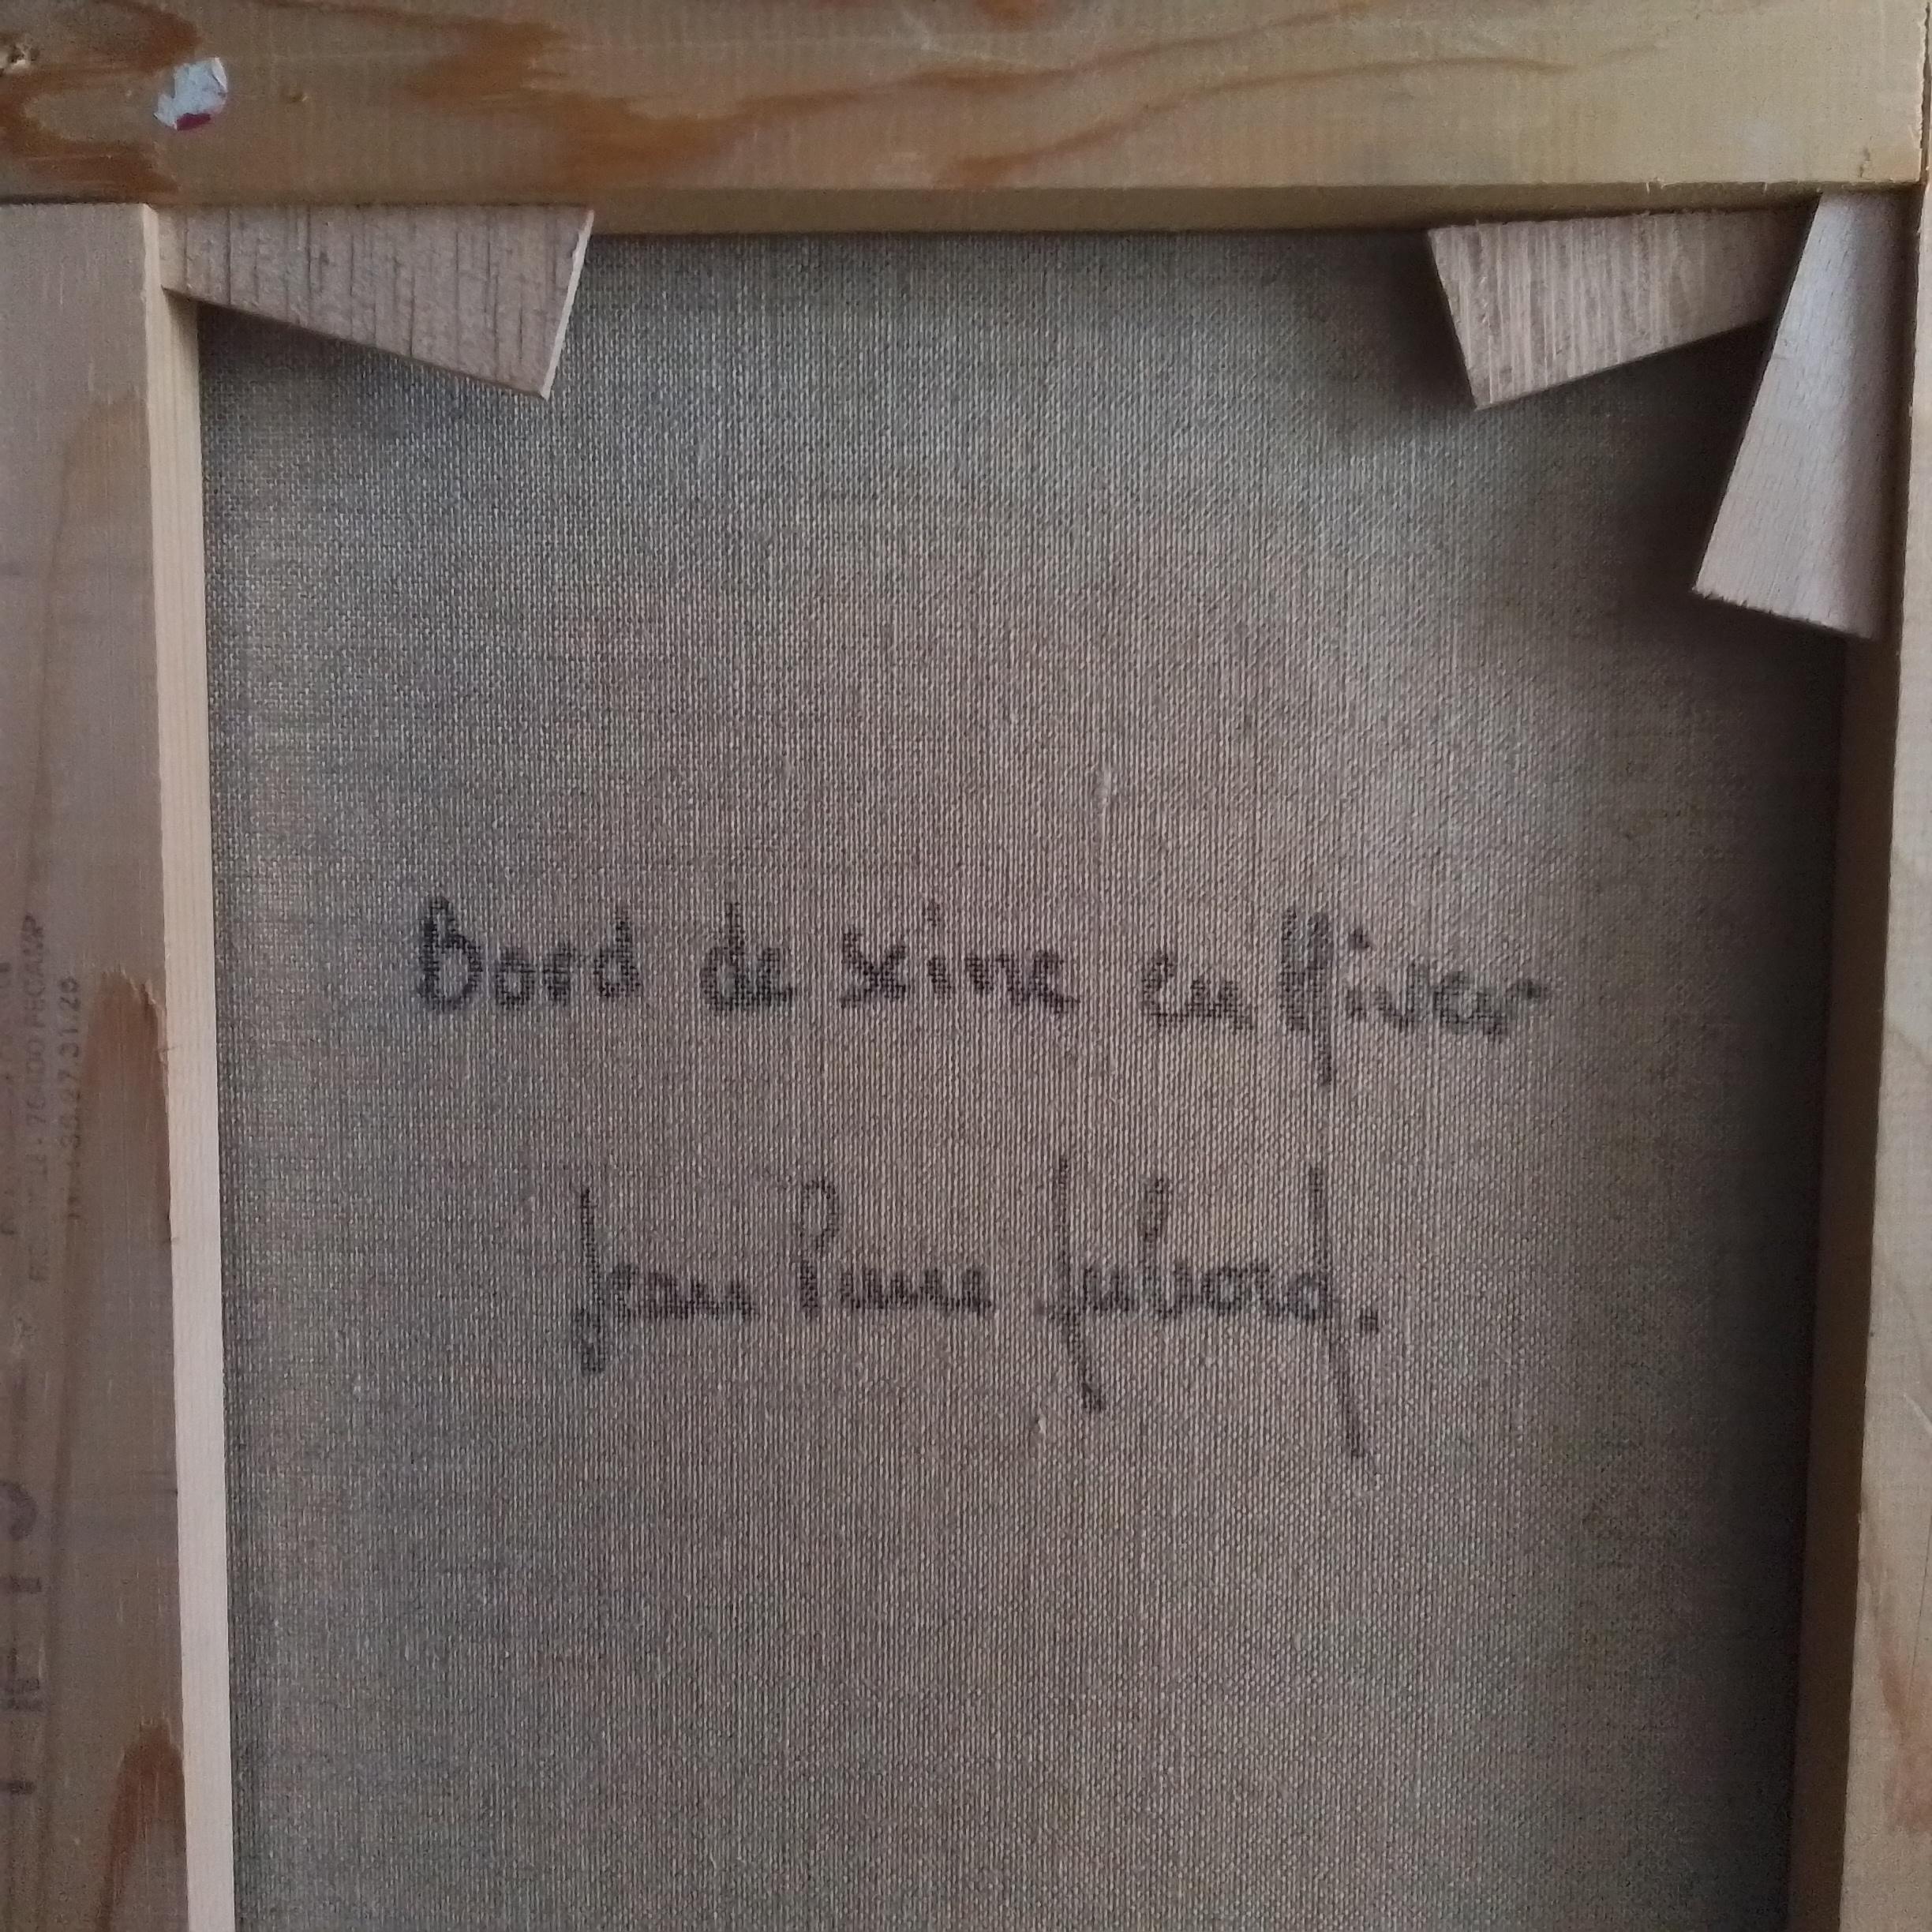 Bord de seine en Hiver
Jean Pierre Jubord.
76400 FECAMP
27.31.26